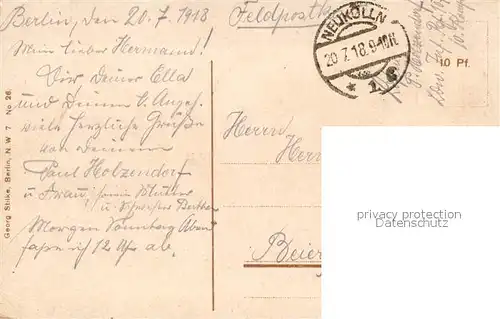 Berlin, den 20.7.1918
Mein lieber Hermann!
Dir, Deiner Ella
und Deinen b. Angeh.
viele herzliche Grüße
von Deinem
Paul Holzendorf
u. Frau, sowie Mutter
u. Schwester Berta
Morgen Sonntag Abend
fahre ich 12 Uhr ab.
Georg Stilke, Berlin, N.W. 7 No 26.
Feldpostk
NEUKÖLLN
20.7.18.9-10N.
* 1 g
10 Pf.
Herrn
Her
Beier
privacy protection
Datenschutz